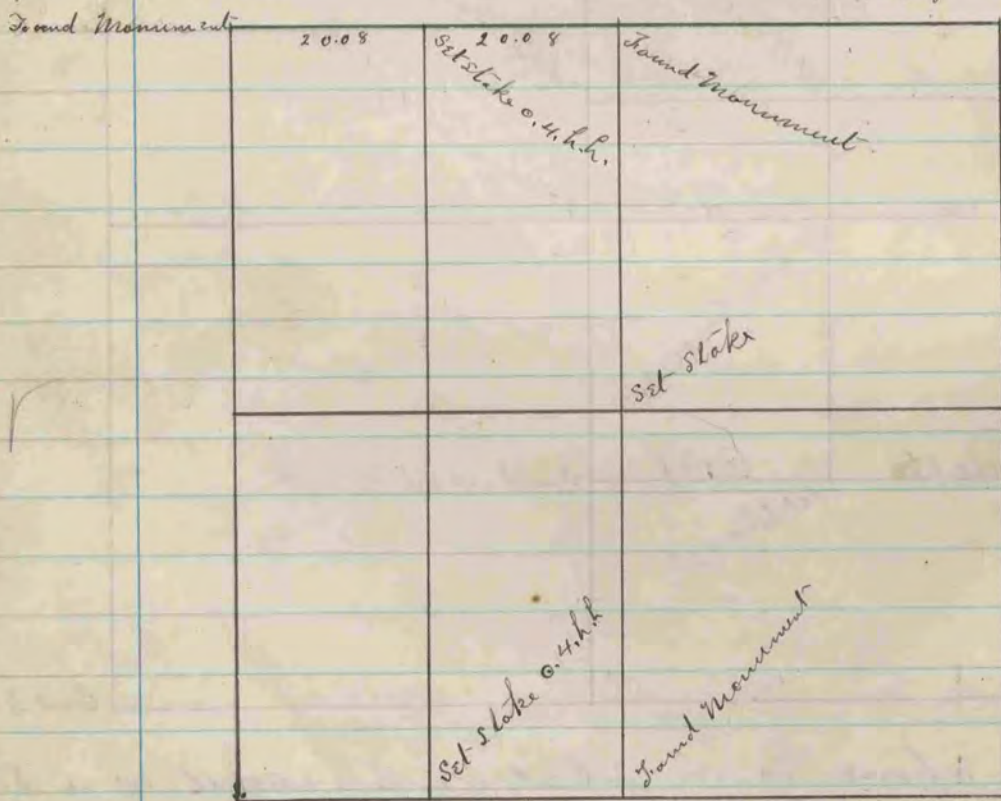 Found Monument
20.08
20.08
Set Stake o.4.h.h.
Found Monument
Set Stake
Set Stake o.4.h.h
Found Monument